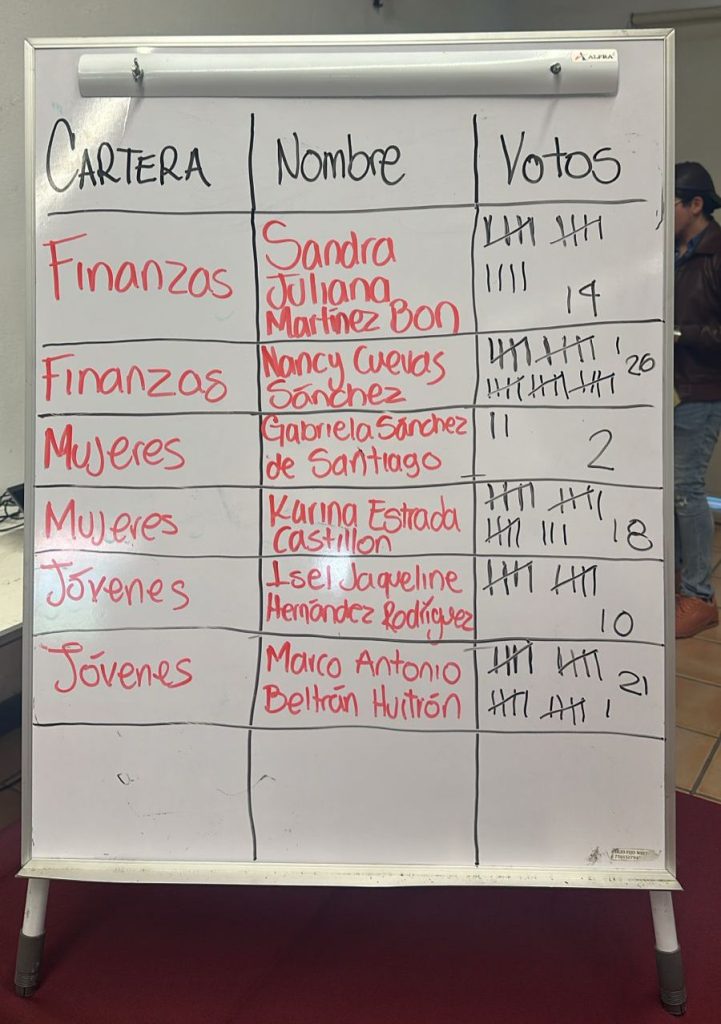 ALFRA
CARTERA Nombre Votos
Finanzas
Sandra
Juliana
Martínez Bon
14
Finanzas
Nancy Cuevas
Sánchez
26
Mujeres
Gabriela Sánchez
de Santiago
2
Mujeres
Karina Estrada
Castillon
18
Jóvenes
Isel Jaqueline
Hernández Rodríguez
10
Jóvenes
Marco Antonio
Beltrán Huitrón
21